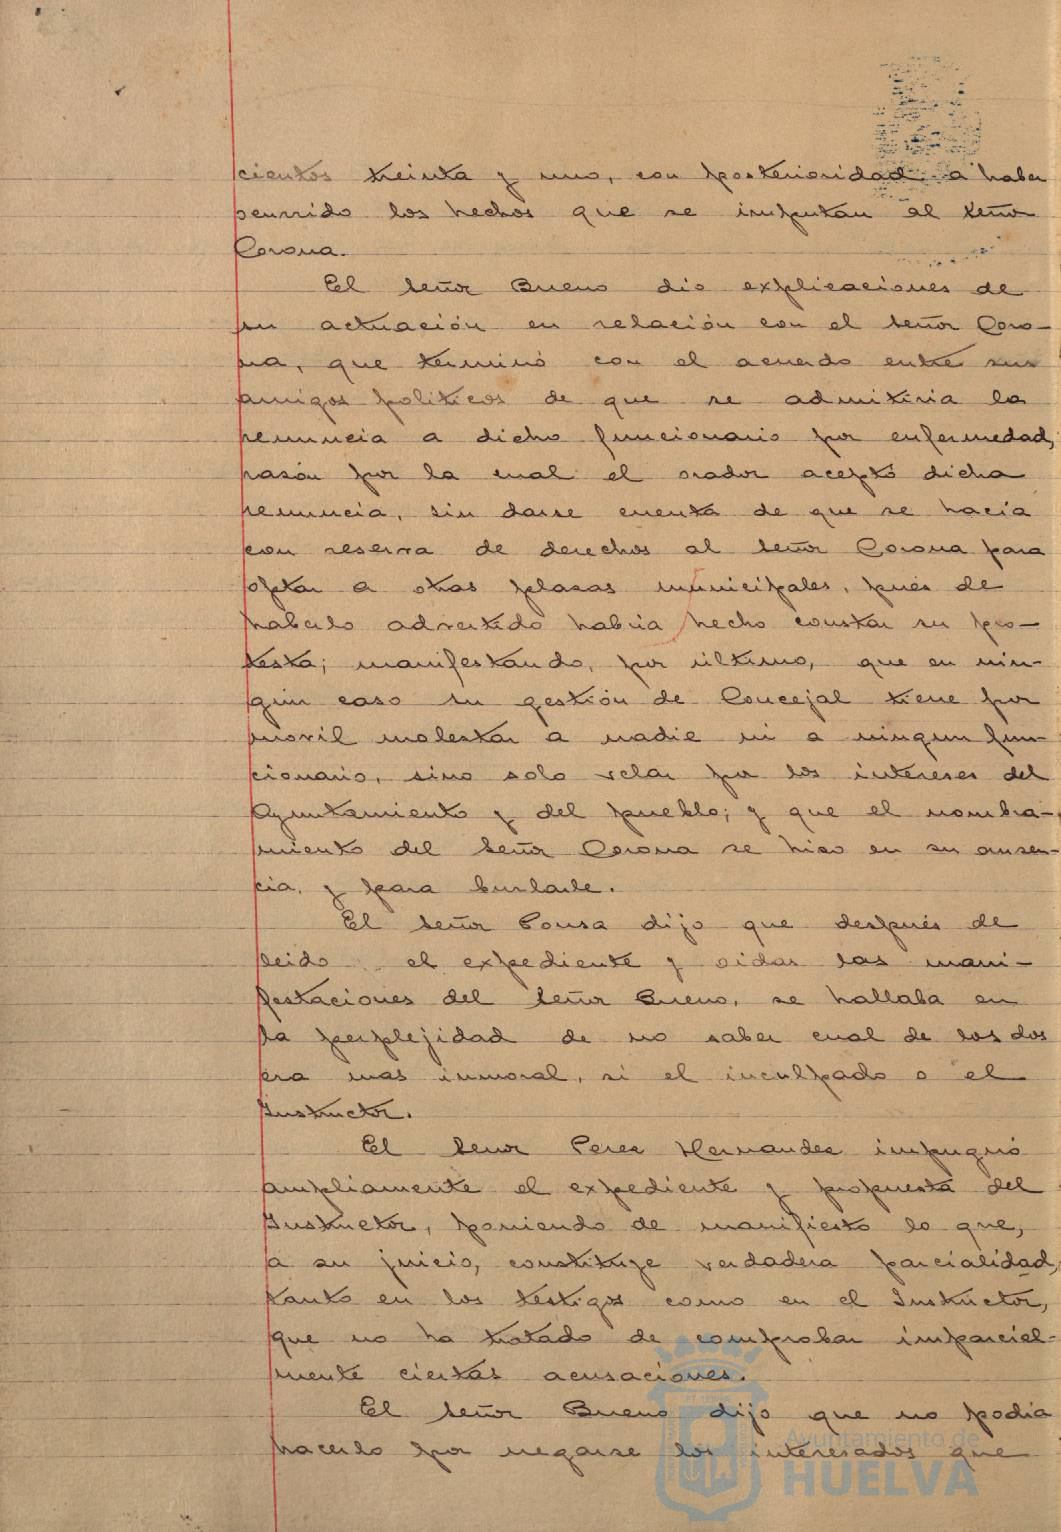 cientos treinta y uno, con posterioridad a haber
ocurrido los hechos que se imputan al señor
Corona.
El señor Bueno dio explicaciones de
su actuación en relación con el señor Coro-
na, que terminó con el acuerdo entre sus
amigos politicos de que se admitiria la
renuncia a dicho funcionario por enfermedad,
razón por la cual el orador aceptó dicha
renuncia, sin darse cuenta de que se hacía
con reserva de derechos al señor Corona para
optar a otras plazas municipales, pués de
haberlo advertido habria hecho constar su pro-
testa; manifestando, por último, que en nin-
gun caso su gestión de Concejal tiene por
movil molestar a nadie ni a ningun fun-
cionario, sino solo velar por los intereses del
Ayuntamiento y del pueblo; y que el nombra-
miento del señor Corona se hizo en su ausen-
cia, y para burlarle.
El señor Pousa dijo que después de
leido el expediente y oidas las mani-
festaciones del señor Bueno, se hallaba en
la perplejidad de no saber cual de los dos
era mas inmoral, si el inculpado o el
Instructor.
El senor Perez Hernandez impugnó
ampliamente el expediente y propuesta del
Instructor, poniendo de manifiesto lo que,
a su juicio, constituye verdadera parcialidad,
tanto en los testigos como en el Instructor,
que no ha tratado de comprobar imparcial-
mente ciertas acusaciones.
El señor Bueno dijo que no podia
hacerlo por negarse los interesados que
Ayuntamiento de
HUELVA